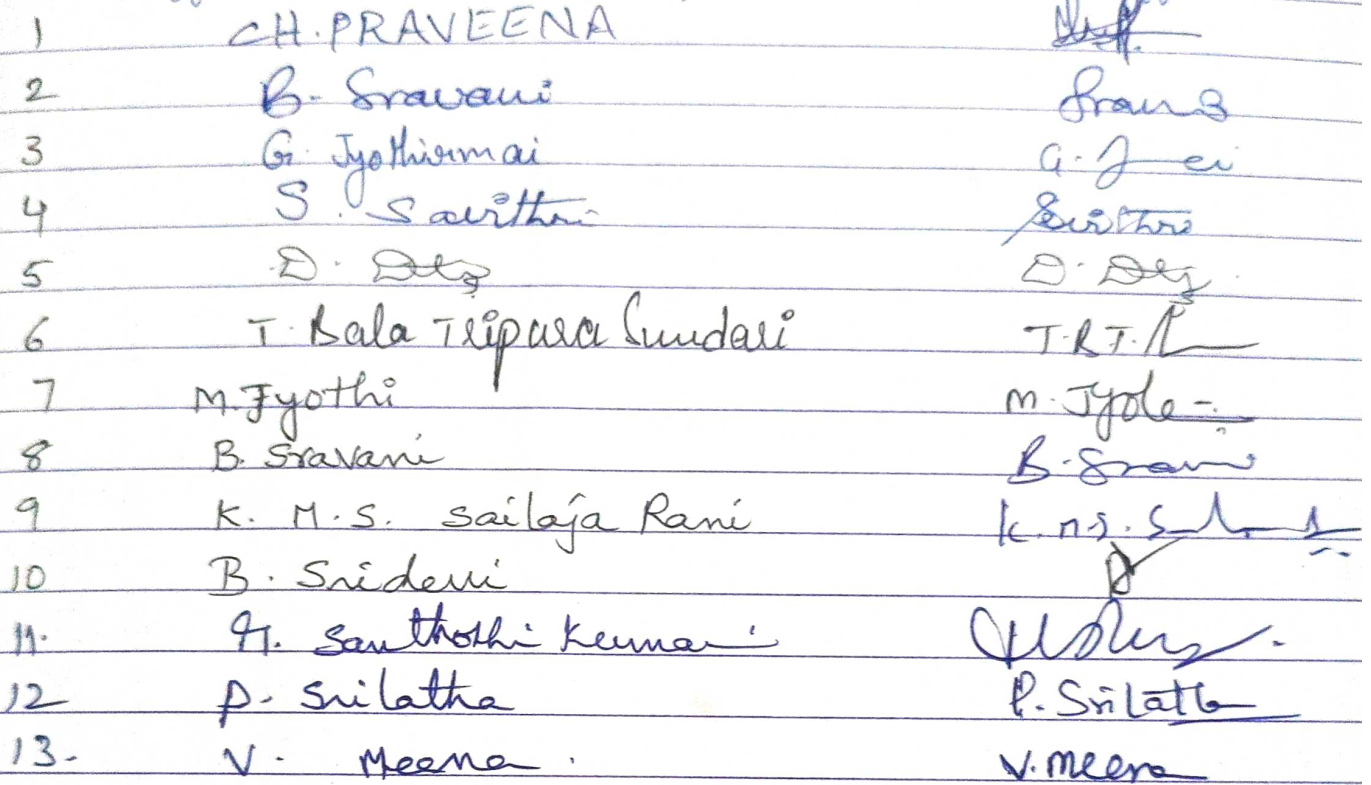 1 CH. PRAVEENA
2 B. Sravani Sravs
3 G. Jyothirmai G. J
4 S. Savithri Savithri
5 D. D.
6 T. Bala Tripura Sundari T.B.T.
7 M. Jyothi M.
8 B. Sravani B. Sravani
9 K. M. S. Sailaja Rani K. M. S.
10 B. Sridevi
11. Santhoshi Kumari
12 P. Srilatha P. Srilatha
13. V. Meena. V. Meena